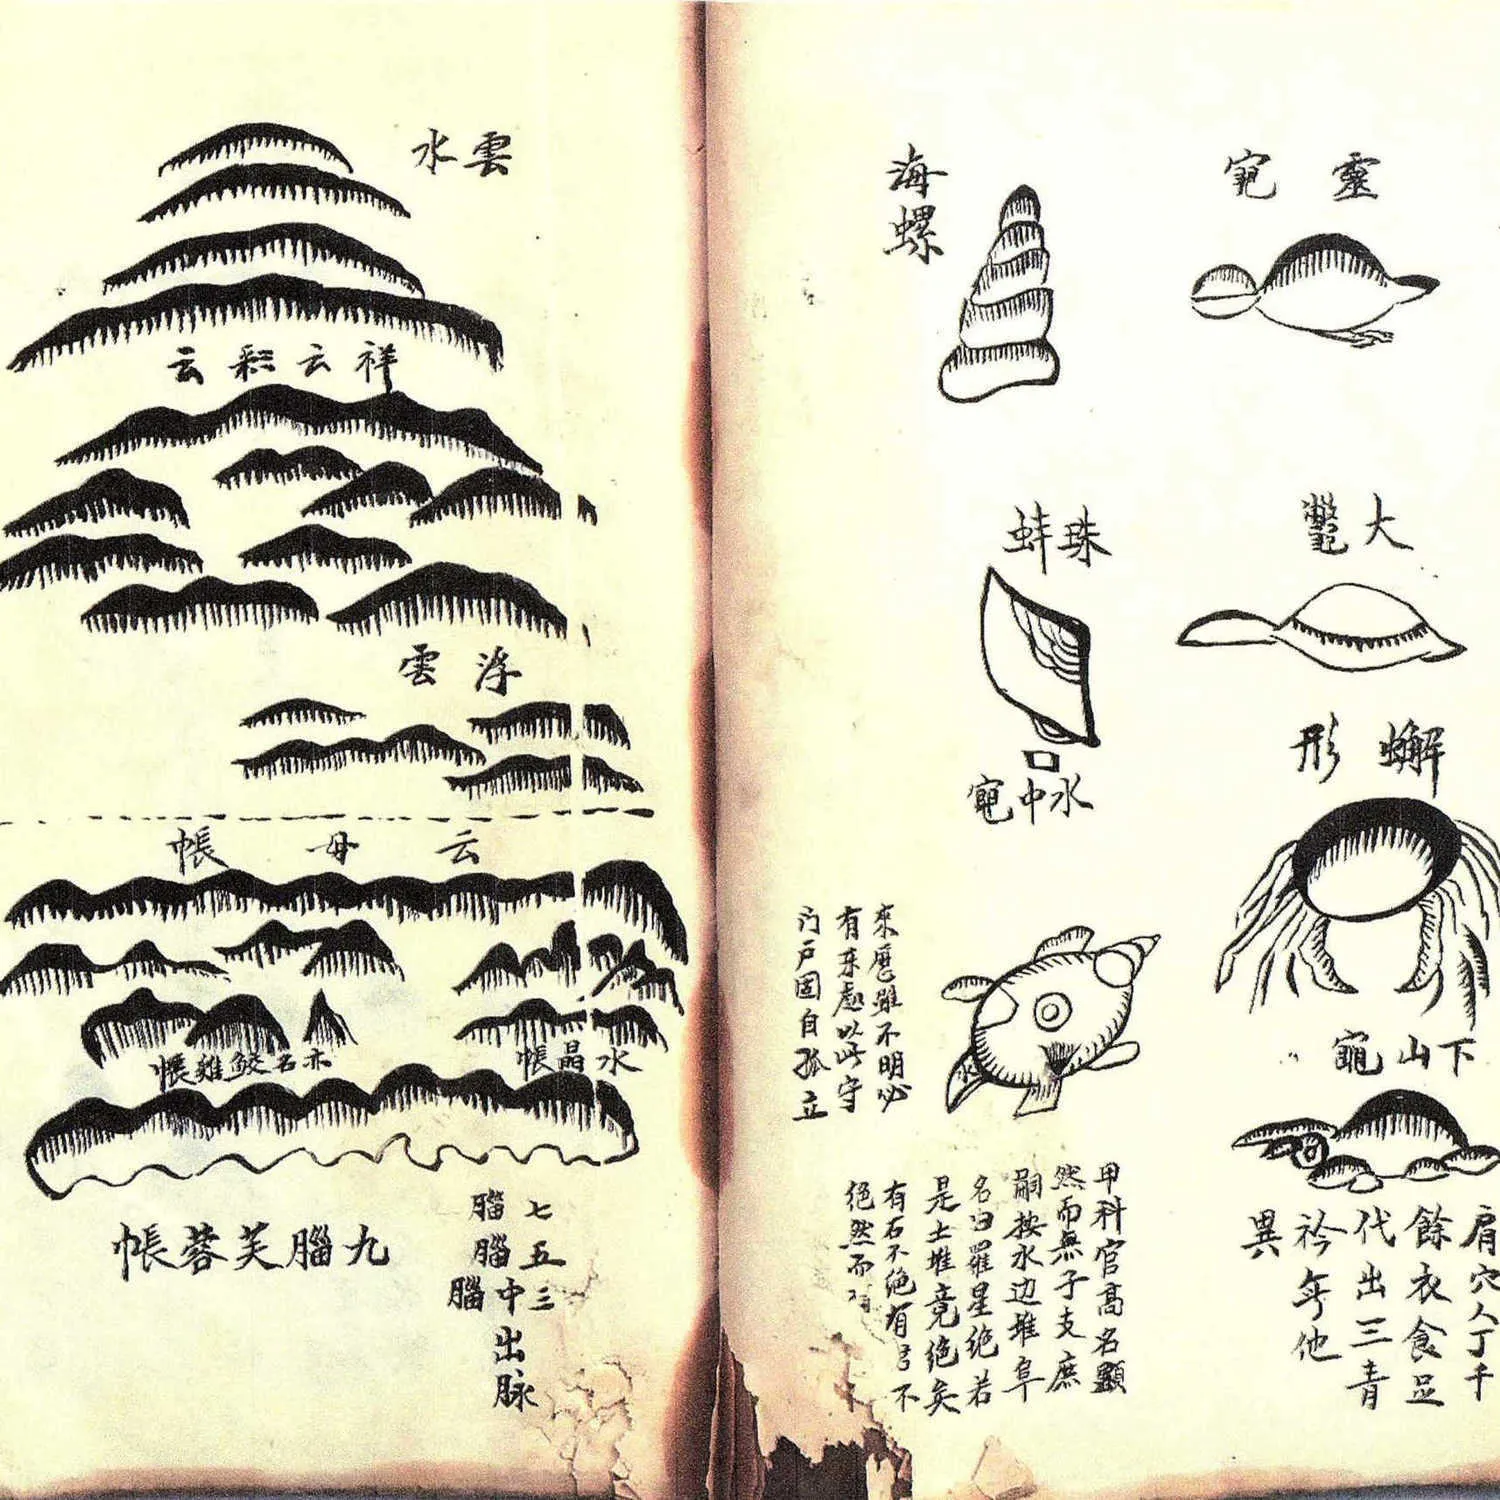 靈龟
大鱉
蠏形
下山龜
肩穴人丁千
餘衣食足
代出三青
衿年他
異
海螺
珠蚌
水中龟
來歷雖不明必
有来處以此守
门户固自孤立
甲科官高名顯
然而無子支庶
嗣按水边堆阜
名曰羅星绝若
是土堆竟绝矣
有石不绝有 不
绝然而
雲水
祥云彩云
浮雲
云母帳
水晶帳
亦名鮫雞帳
七腦
五腦
三中腦
出脉
九腦芙蓉帳